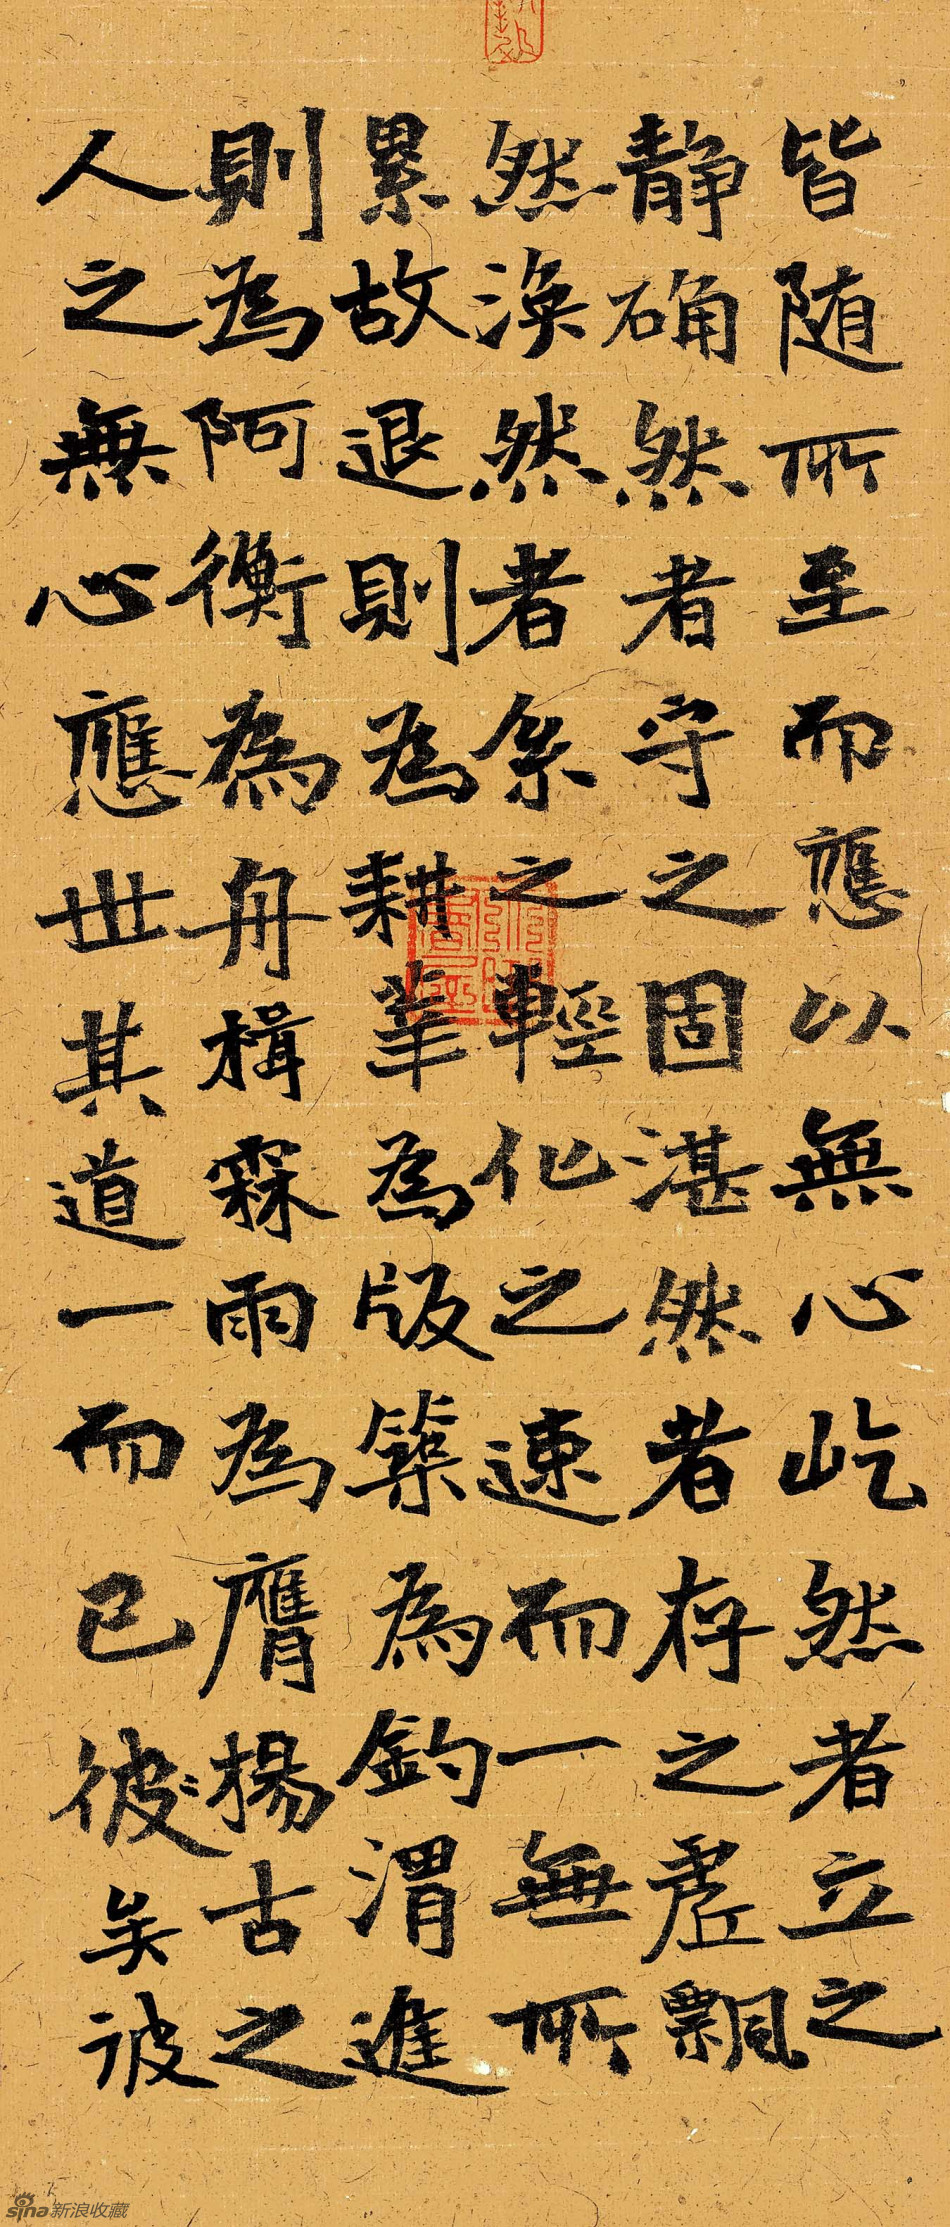 皆随所至而應以無心屹然者立之
静确然者守之固湛然者存之虛飄
然渙然者系之輕化之速而一無所
累故退則為耕莘為版築為釣渭進
則為阿衡為舟楫霖雨為膺揚古之
人之無心應世其道一而已彼矣詖
sina新浪收藏